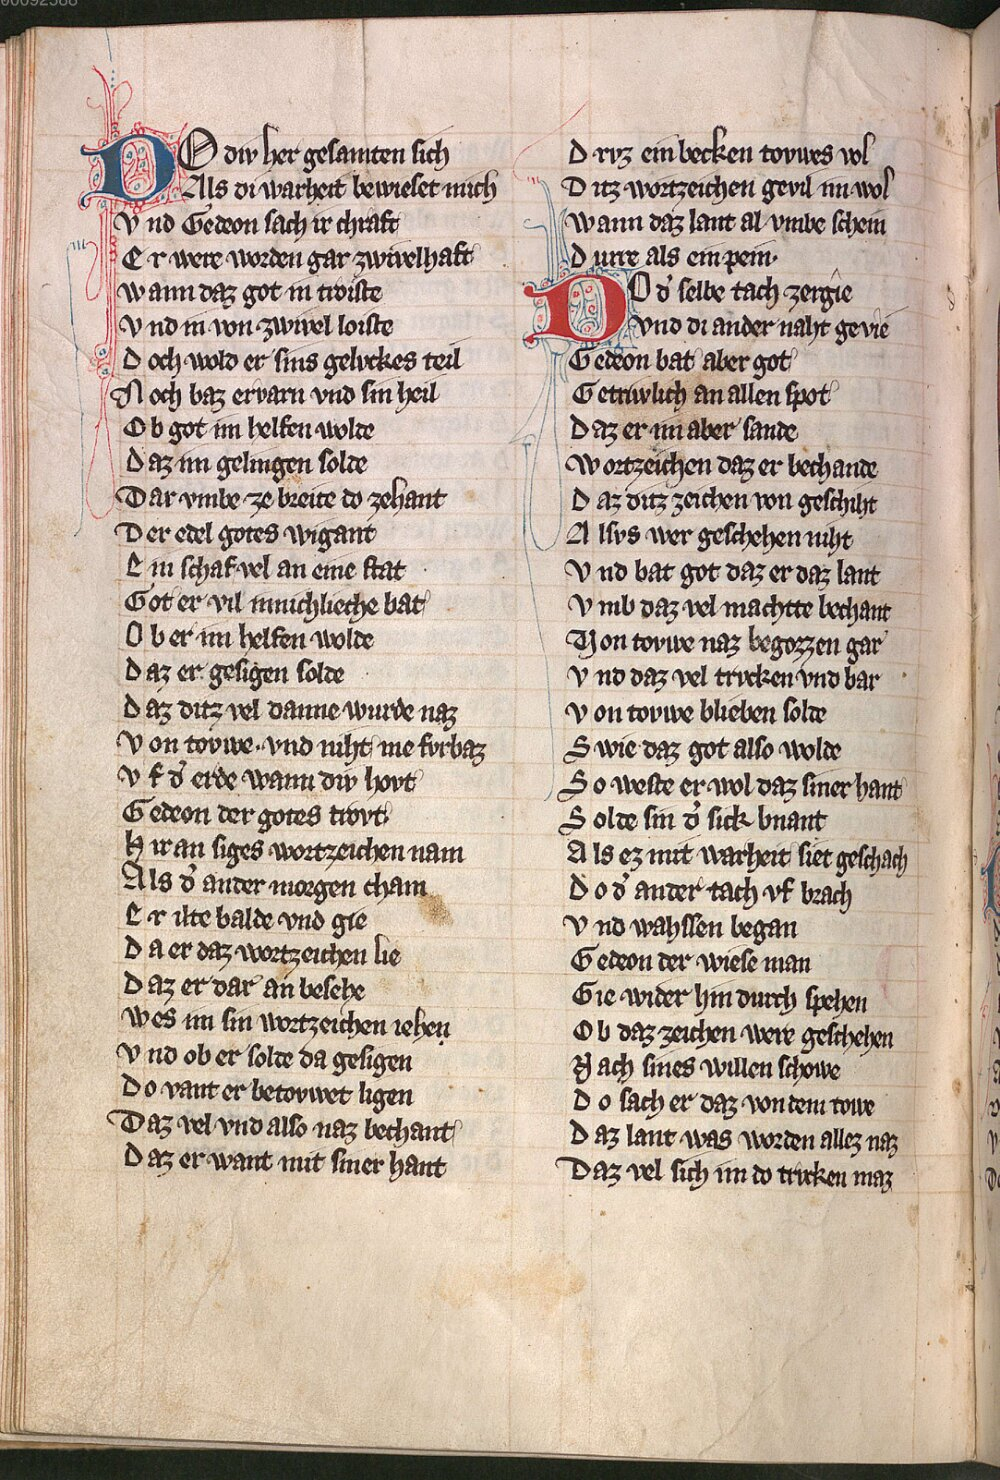 00092588
DO div her gesamten sich
Als di warheit bewieset mich
Vnd Gedeon sach ir chraft
Er were worden gar zwivelhaft
wann daz got in troiste
Vnd in von zwivel loiste
Doch wold er sins gelvckes teil
Noch baz ervarn vnd sin heil
Ob got im helfen wolde
Daz im gelingen solde
Dar vmbe ze breite do zehant
Der edel gotes wigant
Ein schaf vel an eine stat
Got er vil innichlieche bat
Ob er im helfen wolde
Daz er gesigen solde
Daz ditz vel danne wurde naz
Von tovwe. vnd niht me fvrbaz
Vf d' erde wann div hovt
Gedeon der gotes trovt
Hir an siges wortzeichen nam
Als d' ander morgen cham
Er ilte balde vnd gie
Da er daz wortzeichen lie
Daz er dar an besehe
wes im sin wortzeichen iehen
Vnd ob er solte da gesigen
Do vant er betovwet ligen
Daz vel vnd also naz bechant
Daz er want mit siner hant
Drvz ein becken tovwes vol
Ditz wortzeichen gevil im wol
wann daz lant al vmbe schein
Durre als ein pein.
DO d' selbe tach zergie
vnd di ander naht gevie
Gedeon bat aber got
Getriwlich an allen spot
Daz er im aber sande
wortzeichen daz er bechande
Daz ditz zeichen von geschiht
Alsvs wer geschehen niht
Vnd bat got daz er daz lant
Vmb daz vel machtte bechant
Von tovwe naz begozzen gar
Vnd daz vel trvcken vnd bar
Von tovwe blieben solte
Swie daz got also wolde
So weste er wol daz siner hant
Solde sin d' sick bnant
Als ez mit warheit siet geschach
Do d' ander tach vf brach
Vnd wahssen began
Gedeon der wiese man
Gie wider hin durch spehen
Ob daz zeichen were geschehen
Nach sines willen schowe
Do sach er daz von dem towe
Daz lant was worden allez naz
Daz vel sich im do trvcken maz